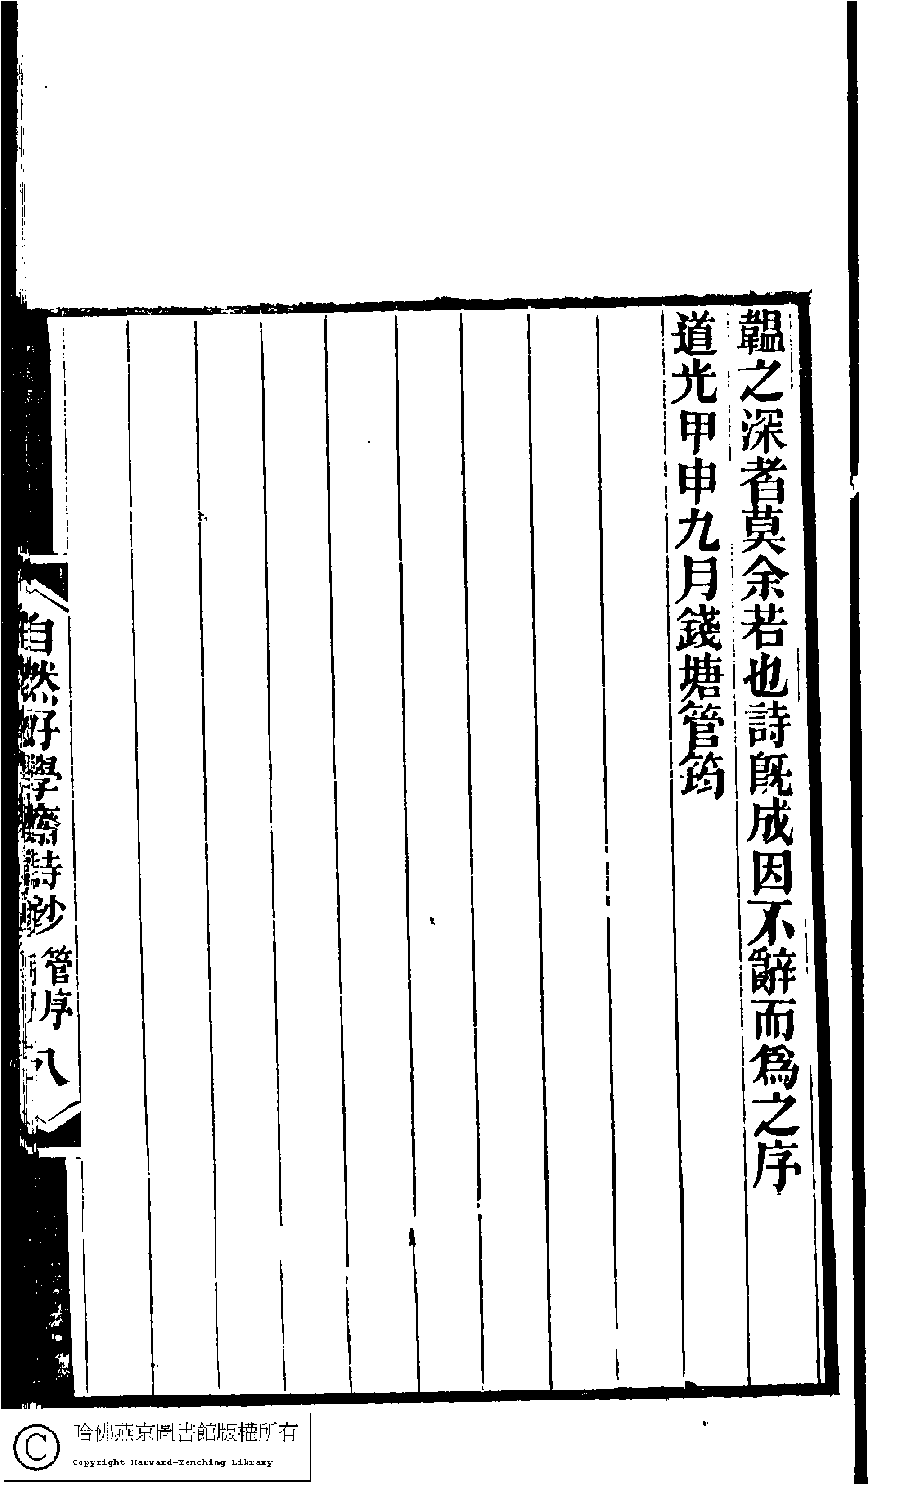 韞之深者莫余若也詩旣成因不辭而爲之序
道光甲申九月錢塘管筠
自然好學齋詩鈔
管序
八
哈佛燕京圖書館版權所有
Copyright Harvard-Yenching Library